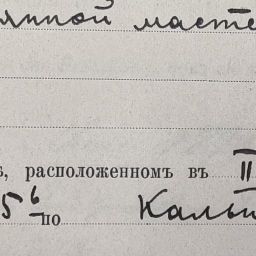 янной масте
ѣ, расположенномъ въ II
5⁶ по Кальи